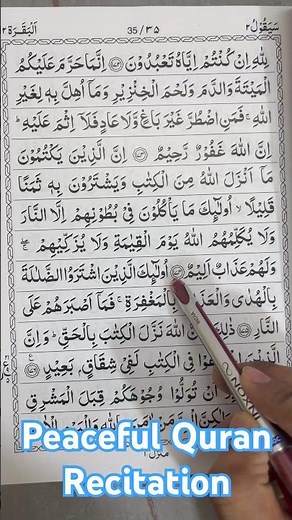 سَيَقُوْلُ ٢ 35/٣٥ اَلْبَقَرَة ٢
لِلّٰهِ اِنْ كُنْتُمْ اِيَّاهُ تَعْبُدُوْنَ ﴿١٧٢﴾ اِنَّمَا حَرَّمَ عَلَيْكُمُ
الْمَيْتَةَ وَالدَّمَ وَلَحْمَ الْخِنْزِيْرِ وَمَآ اُهِلَّ بِهٖ لِغَيْرِ
اللّٰهِ ۚ فَمَنِ اضْطُرَّ غَيْرَ بَاغٍ وَّلَا عَادٍ فَلَآ اِثْمَ عَلَيْهِ ؕ
اِنَّ اللّٰهَ غَفُوْرٌ رَّحِيْمٌ ﴿١٧٣﴾ اِنَّ الَّذِيْنَ يَكْتُمُوْنَ
مَآ اَنْزَلَ اللّٰهُ مِنَ الْكِتٰبِ وَيَشْتَرُوْنَ بِهٖ ثَمَنًا
قَلِيْلًا ۙ اُولٰٓئِكَ مَا يَاْكُلُوْنَ فِيْ بُطُوْنِهِمْ اِلَّا النَّارَ
وَلَا يُكَلِّمُهُمُ اللّٰهُ يَوْمَ الْقِيٰمَةِ وَلَا يُزَكِّيْهِمْ ۖۚ
وَلَهُمْ عَذَابٌ اَلِيْمٌ ﴿١٧٤﴾ اُولٰٓئِكَ الَّذِيْنَ اشْتَرَوُا الضَّلٰلَةَ
بِالْهُدٰى وَالْعَذَابَ بِالْمَغْفِرَةِ ۚ فَمَآ اَصْبَرَهُمْ عَلَى
النَّارِ ﴿١٧٥﴾ ذٰلِكَ بِاَنَّ اللّٰهَ نَزَّلَ الْكِتٰبَ بِالْحَقِّ ؕ وَاِنَّ
الَّذِيْنَ فِي الْكِتٰبِ لَفِيْ شِقَاقٍۭ بَعِيْدٍ ﴿١٧٦﴾
اَنْ تُوَلُّوْا وُجُوْهَكُمْ قِبَلَ الْمَشْرِقِ
Peaceful Quran
Recitation